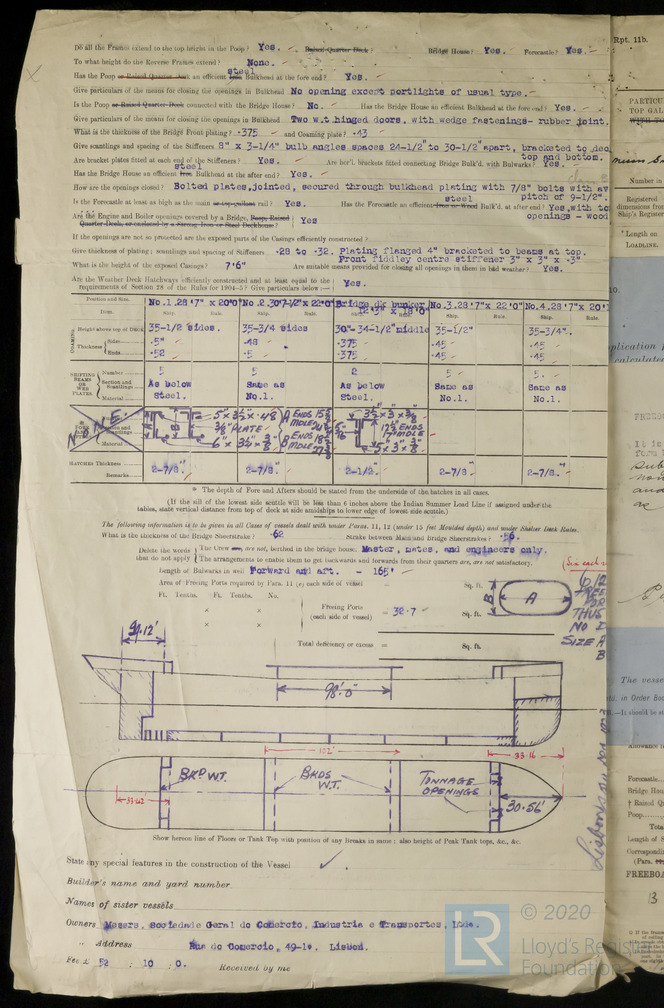 Do all the Frames extend to the top height in the Poop? Yes. Raised Quarter Deck? Bridge House? Yes. Forecastle? Yes.
To what height do the Reverse Frames extend? None.
Has the Poop or Raised Quarter deck an efficient steel Bulkhead at the fore end? Yes.
Give particulars of the means for closing the openings in Bulkhead No opening except portlights of usual type.
Is the Poop or Raised Quarter Deck connected with the Bridge House? No. Has the Bridge House an efficient Bulkhead at the fore end? Yes.
Give particulars of the means for closing the openings in Bulkhead Two w.t. hinged doors, with wedge fastenings- rubber joint.
What is the thickness of the Bridge Front plating? .375 and Coaming plate? .43
Give scantlings and spacing of the Stiffeners 8" x 3-1/4" bulb angles spaces 24-1/2" to 30-1/2" apart, bracketed to dec
top and bottom.
Are bracket plates fitted at each end of the Stiffeners? Yes. Are hor'l. brackets fitted connecting Bridge Bulk'd. with Bulwarks? Yes.
Has the Bridge House an efficient steel Bulkhead at the after end? Yes.
How are the openings closed? Bolted plates, jointed, secured through bulkhead plating with 7/8" bolts with av
pitch of 9-1/2".
Is the Forecastle at least as high as the main or top-gallant rail? Yes. Has the Forecastle an efficient steel Iron or Wood Bulk'd. at after end? Yes, with to
openings - wood
Are the Engine and Boiler openings covered by a Bridge, Poop, Raised
Quarter Deck, or enclosed by a Strong Iron or Steel Deckhouse? Yes
If the openings are not so protected are the exposed parts of the Casings efficiently constructed?
Give thickness of plating; scantlings and spacing of Stiffeners .28 to .32. Plating flanged 4" bracketed to beams at top.
Front fiddley centre stiffener 3" x 3" x .3"
What is the height of the exposed Casings? 7'6" Are suitable means provided for closing all openings in them in bad weather? Yes.
Are the Weather Deck Hatchways efficiently constructed and at least equal to the
requirements of Section 28 of the Rules for 1904-5? Give particulars below:— Yes.
Position and Size. No.1. 28'7" x 20'0" No.2. 30'7-1/2" x 22'0" Bridge dk bunker 12'3" x 18'0" No.3. 28'7" x 22'0" No.4. 28'7" x 20'
Item. Ship. Rule. Ship. Rule. Ship. Rule. Ship. Rule. Ship. Rule.
COAMING
Height above top of DECK 35-1/2 sides. 35-3/4 sides 30"- 34-1/2" middle 35-1/2" 35-3/4".
Thickness Sides .5" .48 .375 .45 .45
Ends .52 .5 .375 .45 .45
SHIFTING BEAMS OR WEB PLATES.
Number 5 5 2 5 5.
Section and Scantlings As below Same as As below Same as Same as
Material Steel. No.1. Steel. No.1. No.1.
NONE.
5" x 3½" x .48
3/8" PLATE
6" x 3½" x 3/8
A ENDS
MDLE
B ENDS
MDLE
3½ x 3 x 3/8
12½ ENDS
17" MDLE
5 x 3 x 3/8
Material
HATCHES Thickness 2-7/8" 2-7/8." 2-1/2". 2-7/8" 2-7/8."
Remarks
* The depth of Fore and Afters should be stated from the underside of the hatches in all cases.
(If the sill of the lowest side scuttle will be less than 6 inches above the Indian Summer Load Line if assigned under the
tables, state vertical distance from top of deck at side amidships to lower edge of lowest side scuttle.)
The following information is to be given in all Cases of vessels dealt with under Paras. 11, 12 (under 15 feet Moulded depth) and under Shelter Deck Rules.
What is the thickness of the Bridge Sheerstrake? .62 Strake between Main and Bridge Sheerstrakes? .56
Delete the words that do not apply { The Crew are, are not, berthed in the bridge house. Master, mates, and engineers only.
The arrangements to enable them to get backwards and forwards from their quarters are, are not satisfactory.
Length of Bulwarks in well Forward and aft. - 165'
Area of Freeing Ports required by Para. 11 (e) each side of vessel = Sq. ft.
Ft. Tenths. Ft. Tenths. No.
× ×
× ×
Freeing Ports
(each side of vessel) = 32.7 Sq. ft.
Total deficiency or excess = Sq. ft.
B
A
THUS
SIZE A
B
98'.0"
102'
33.16
33.62
BKD W.T.
BKDS
W.T.
TONNAGE
OPENINGS
30.56'
Show hereon line of Floors or Tank Top with position of any Breaks in same; also height of Peak Tank tops, &c., &c.
State any special features in the construction of the Vessel
Builder's name and yard number
Names of sister vessels
Owners Messrs. Sociedade Geral do Comercio, Industria e Transportes, Ltda.
" Address Rua do Comercio, 49-1º. Lisbon.
Fee £ 52 : 10 : 0. Received by me
Rpt. 11b.
PARTICU
TOP GAL
Number in
Registered
dimensions from
Ship's Register
Length on
LOADLINE.
plication f
calculated
It is
form
The vesse
in Order Soc
It should be st
Allowance f
Forecastle
Bridge Hou
† Raised Q
Poop
Tota
Length of S
Correspondi
(Para.
FREEBOA
© 2020
LR
Lloyd's Register
Foundation